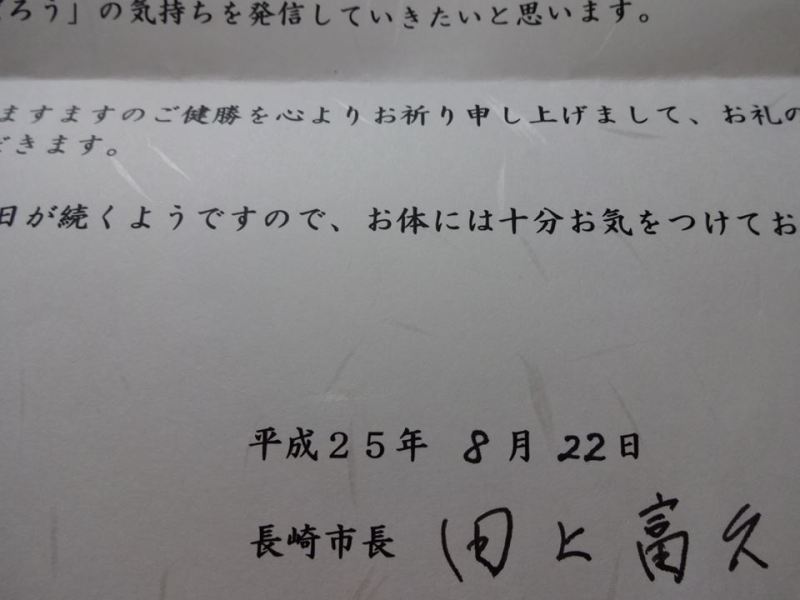 ろう」の気持ちを発信していきたいと思います。
ますますのご健勝を心よりお祈り申し上げまして、お礼の
きます。
日が続くようですので、お体には十分お気をつけてお
平成25年 8月 22日
長崎市長 田上富久